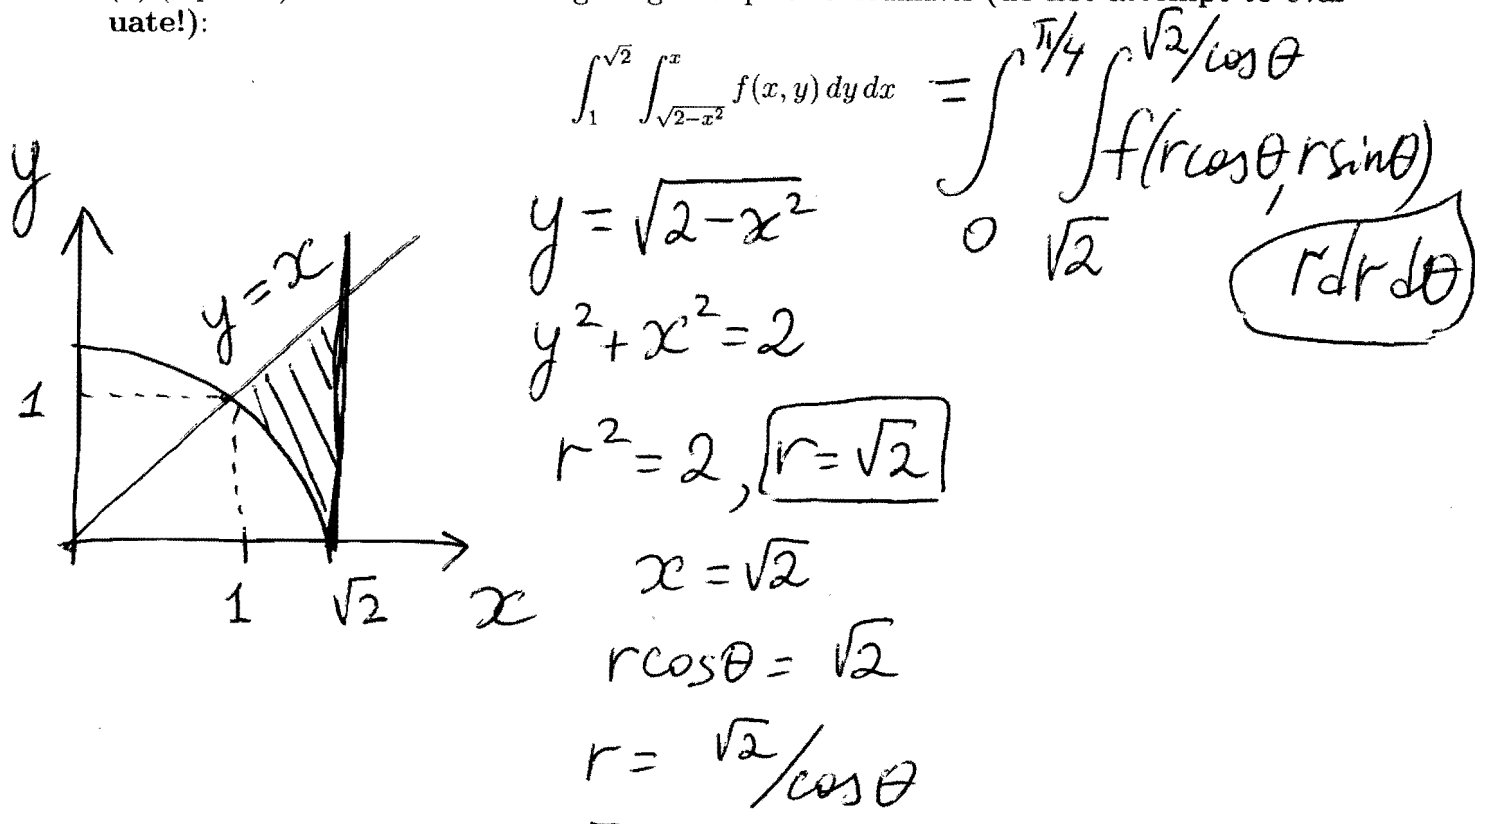 uate!):
∫_1^{√2} ∫_{√(2−x²)}^x f(x, y) dy dx = ∫_0^{π/4} ∫_{√2}^{√2/cosθ} f(rcosθ, rsinθ) rdrdθ
y
y = x
1
1
√2
x
y = √(2−x²)
y² + x² = 2
r² = 2, r = √2
x = √2
rcosθ = √2
r = √2/cosθ